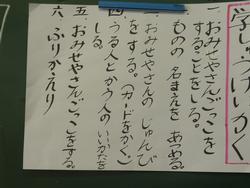 学しゅうけいかく
一、おみせやさんごっこを
することをしる。
二、ものの名まえをあつめる。
三、おみせやさんのじゅんび
をする。(カードをかく)
四、うる人とかう人のいいかたを
しる。
五、おみせやさんごっこをする。
六、ふりかえり